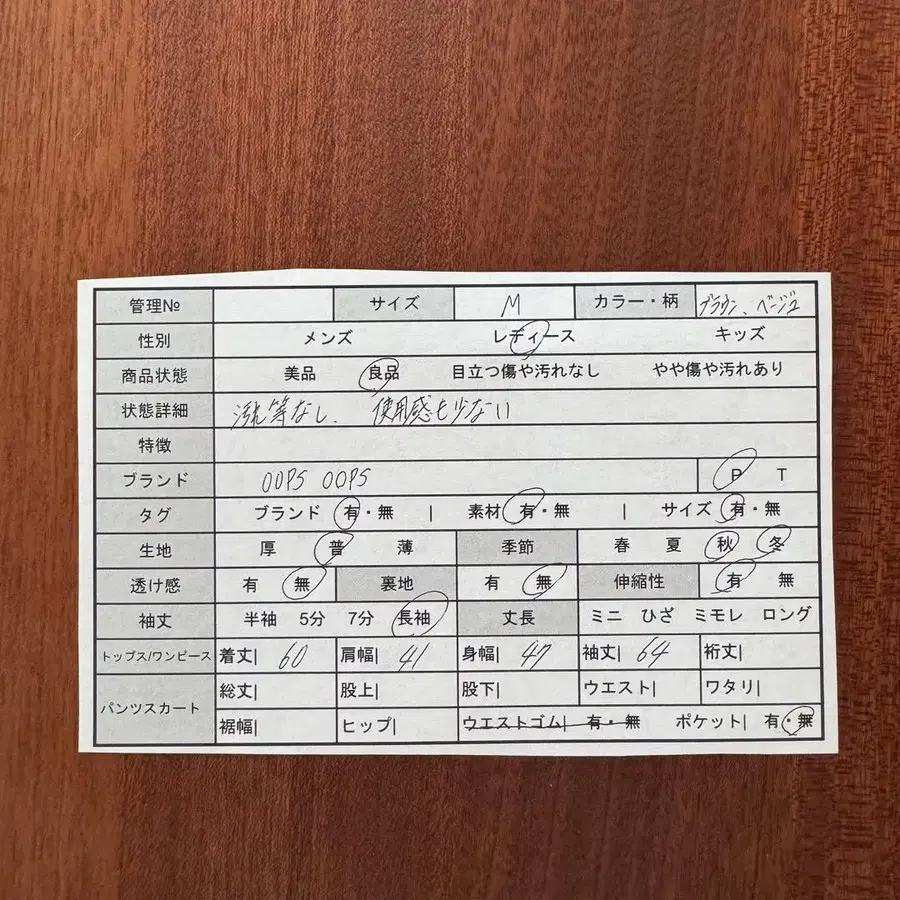 管理№ サイズ M カラー・柄 ブラウン、ベージュ
性別 メンズ レディース キッズ
商品状態 美品 良品 目立つ傷や汚れなし やや傷や汚れあり
状態詳細 汚れ等なし、使用感も少ない
特徴
ブランド OOPS OOPS P T
タグ ブランド 有・無 | 素材 有・無 | サイズ 有・無
生地 厚 普 薄 季節 春 夏 秋 冬
透け感 有 無 裏地 有 無 伸縮性 有 無
袖丈 半袖 5分 7分 長袖 丈長 ミニ ひざ ミモレ ロング
トップス/ワンピース 着丈| 60 肩幅| 41 身幅| 47 袖丈| 64 裄丈|
パンツスカート 総丈| 股上| 股下| ウエスト| ワタリ|
裾幅| ヒップ| ウエストゴム| 有・無 ポケット| 有・無